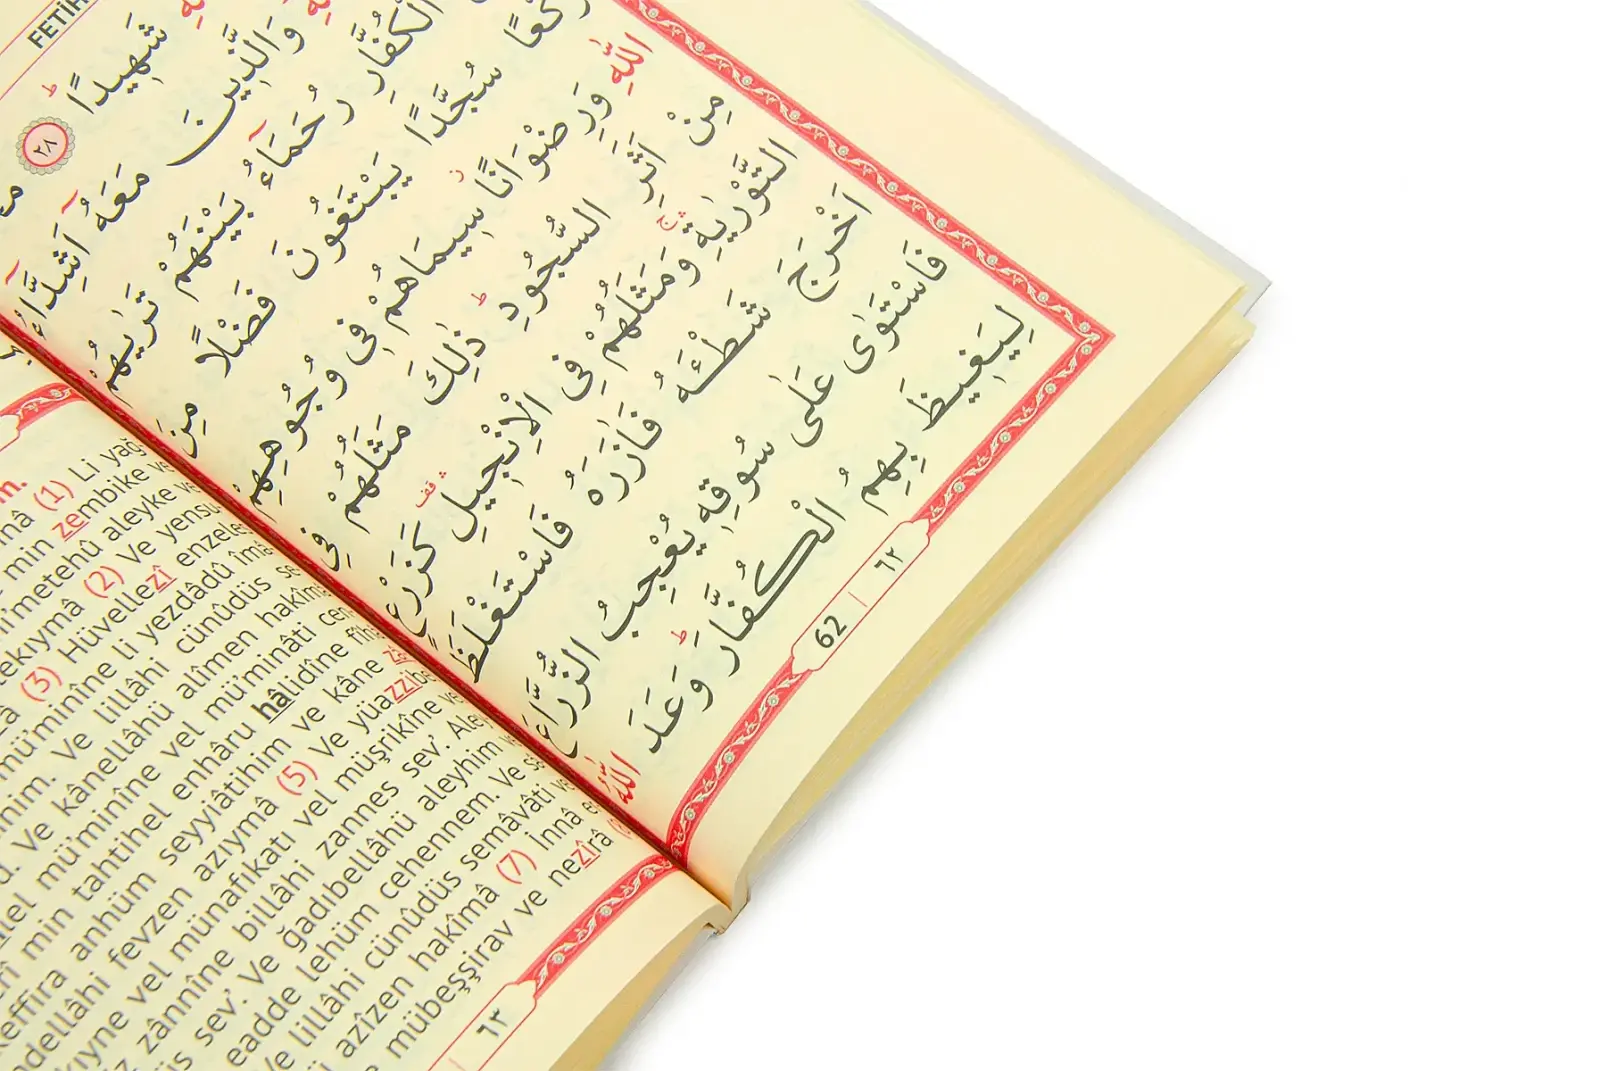 FETİH
شَهِيدًا ط ٢٨
اللهِ وَالَّذِينَ مَعَهُٓ اَشِدَّٓاءُ
الْكُفَّارِ رُحَمَٓاءُ بَيْنَهُمْ تَرٰيهُمْ
رُكَّعًا سُجَّدًا يَبْتَغُونَ فَضْلًا مِنَ
اللهِ وَرِضْوَانًا ز سِيمَاهُمْ فِى وُجُوهِهِمْ
مِنْ اَثَرِ السُّجُودِ ط ذٰلِكَ مَثَلُهُمْ فِى
التَّوْرٰيةِ وَمَثَلُهُمْ فِى الْاِنْجِيلِ كَزَرْعٍ
اَخْرَجَ شَطْـَٔهُ فَاٰزَرَهُ فَاسْتَغْلَظَ
فَاسْتَوٰى عَلٰى سُوقِهِ يُعْجِبُ الزُّرَّاعَ
لِيَغِيظَ بِهِمُ الْكُفَّارَ ط وَعَدَ اللهُ
62 | ٦٢
(1) Li yağ
min zembike ve
ni'metehû aleyke ve
(2) Ve yensu
(3) Hüvellezî enzele
mü'minîne li yezdâdû îmâ
Ve lillâhi cünûdüs se
Ve kânellâhü alîmen hakîm
mü'minîne vel mü'minâti cen
min tahtihel enhâru hâlidîne fîh
keffira anhüm seyyiâtihim ve kâne
ndellâhi fevzen azıymâ (5) Ve yüazzibe
kıyne vel münafikati vel müşrikîne ve
zânnîne billâhi zannes sev'. Aley
üs sev'. Ve ğadıbellâhü aleyhim
eadde lehüm cehennem. Ve
Ve lillâhi cünûdüs semâvâti ve
azîzen hakîmâ (7) İnnâ
mübeşşirav ve nezîrâ
٦٣